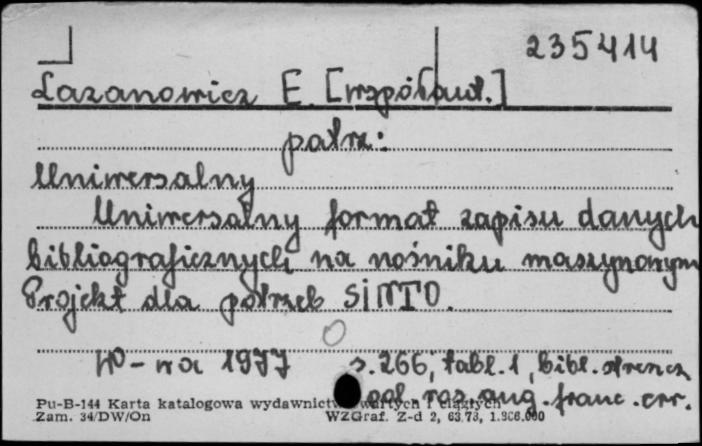 235414
Lazanowicz E. [współaut.]
patrz:
Uniwersalny
Uniwersalny format zapisu danych
bibliograficznych na nośniku maszynowym
Projekt dla potrzeb SINTO.
W-wa 1977 s. 266, tabl. 1, bibl. streszcz
pol. ros. ang. franc. err.
Pu-B-144 Karta katalogowa wydawnictw zwartych i ciągłych
Zam. 34/DW/On WZGraf. Z-d 2, 63.73, 1.306.000